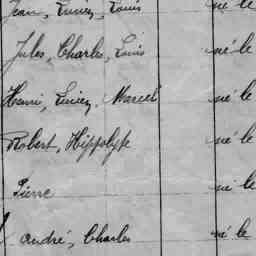 Jean, Lucien, Louis né le
Jules, Charles, Louis né le
Henri, Lucien, Marcel né le
Robert, Hippolyte né le
Pierre né le
André, Charles né le